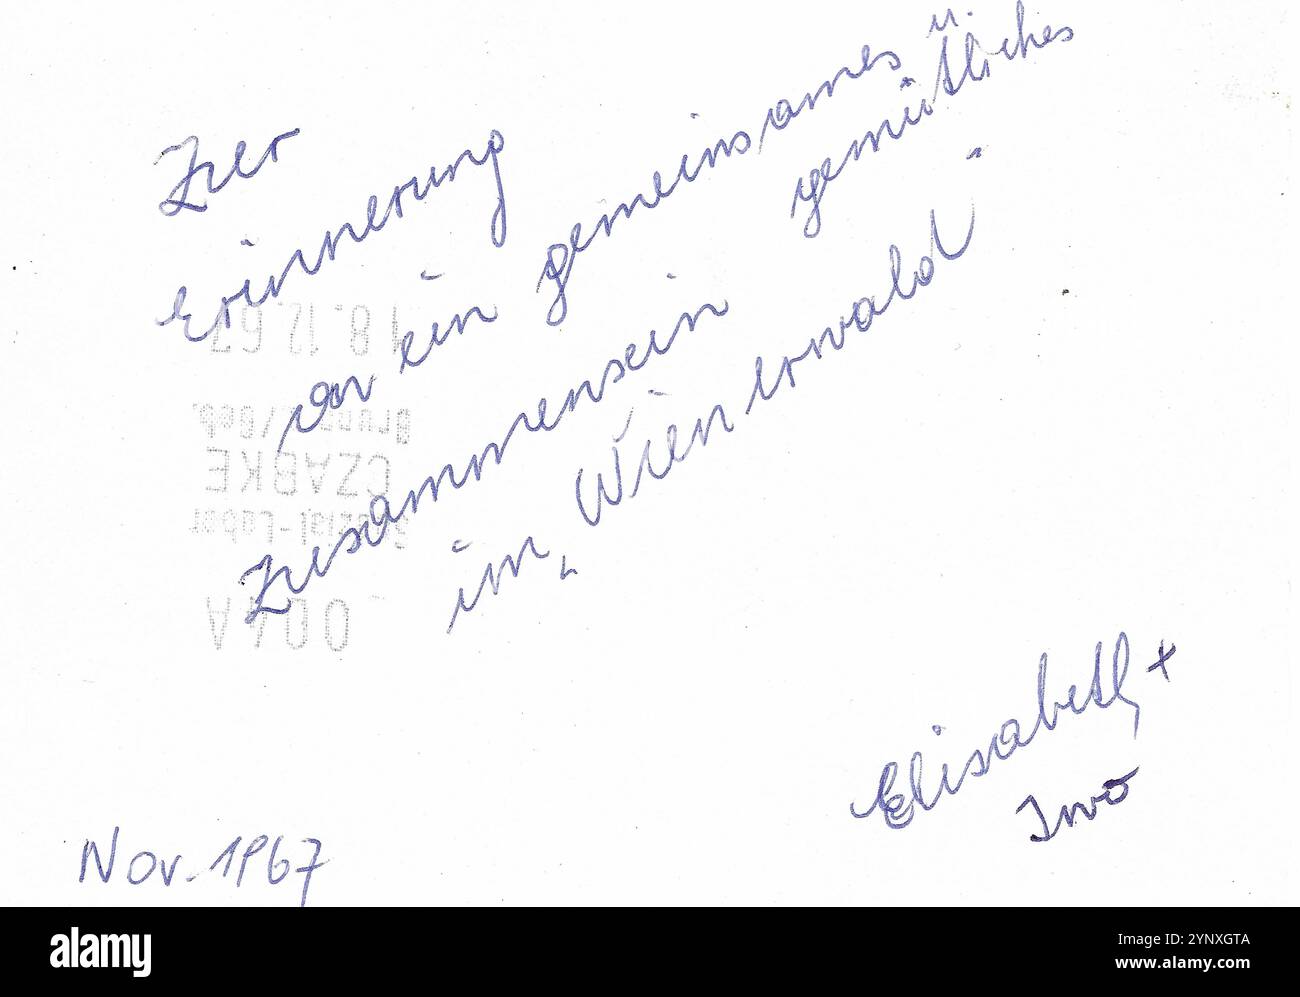 Zur
Erinnerung
an ein gemeinsames u.
gemütliches
Zusammensein
im „Wienerwald"
18.12.67
Brunn/Geb.
CZABKE
Spezial-Labor
004A
Elisabeth +
Ivo
Nov. 1967
alamy
Image ID: 2YNXGTA
www.alamy.com